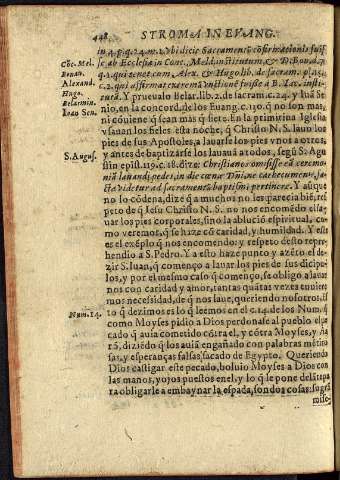 448. STROMA IN EUANG.
in 4. p. q. 24. m. 1. vbi dicit Sacramentũ cõfirmationis fuis
se, ab Ecclesia in Conc. Meld. institutum, & D. Bon. d. 7.
q. 1. qui tenet cum, Alex. & Hugo lib. de sacram. p.
c. 2. qui affirmat
tutũ Y prueualo Belar. lib. 2. de sacram. c. 24. y Iuã Se
nio, en la concord. de los Euang. c. 130. q̃ no son mas,
ni conuiene q̃ seã mas q̃ siete. En la primitiua Iglesia
vsauan los fieles esta noche, q̃ Christo N. S. lauo los
pies de sus Apostoles, a lauarse los pies vnos a otros,
y antes de baptizarse los lauauã a todos, segũ S. Agu
stin epist. 119. c. 18. dize: Christianos omisisse eã ceremo
niã lauandi pedes, in die cœnæ Dñi, ne catbecumenis, ia-
cta videtur ad sacramentũ baptismi pertinere. Y aũque
no lo cõdena, dize q̃ a muchos no les parecia biẽ, res
peto de q̃ Iesu Christo N. S. no nos encomẽdo essa la
uar los pies corporales, sino la ablució espiritual, co
mo veremos, q̃ se haze cõ caridad, y humildad. Y este
es el exẽplo q̃ nos encomendo; y respeto desto repre
hendio a S. Pedro. Y a esto haze punto y azeto el de-
zir S. Iuan, q̃ començo a lauar los pies de sus dicipu
los, y por el mesmo caso q̃ començo, se obligo a lauar
nos con caridad y amor, tantas quãtas vezes tuuiere
mos necessidad, de q̃ nos laue, queriendo nosotros. Es
to q̃ dezimos es lo q̃ leemos en el c. 14. de los Num. q̃
como Moyses pidio a Dios perdonase al pueblo el pe
cado q̃ auia cometido cõtra el, y cõtra Moyses, y Aa
rõ, diziẽdo q̃ los auiã engañado con palabras mẽtiro
sas, y esperanças falsas, sacado de Egypto. Queriendo
Dios castigar este pecado, boluio Moyses a Dios con
las manos, y ojos puestos en el, y lo q̃ le pone delãte pa
ra obligarle a embaynar la espada, son dos cosas: su grã
mise-
Cõc. Mel.
Bonau.
Alexand.
Hugo.
Belarmin.
Ioão Sen.
S. Augus.
Num. 14.